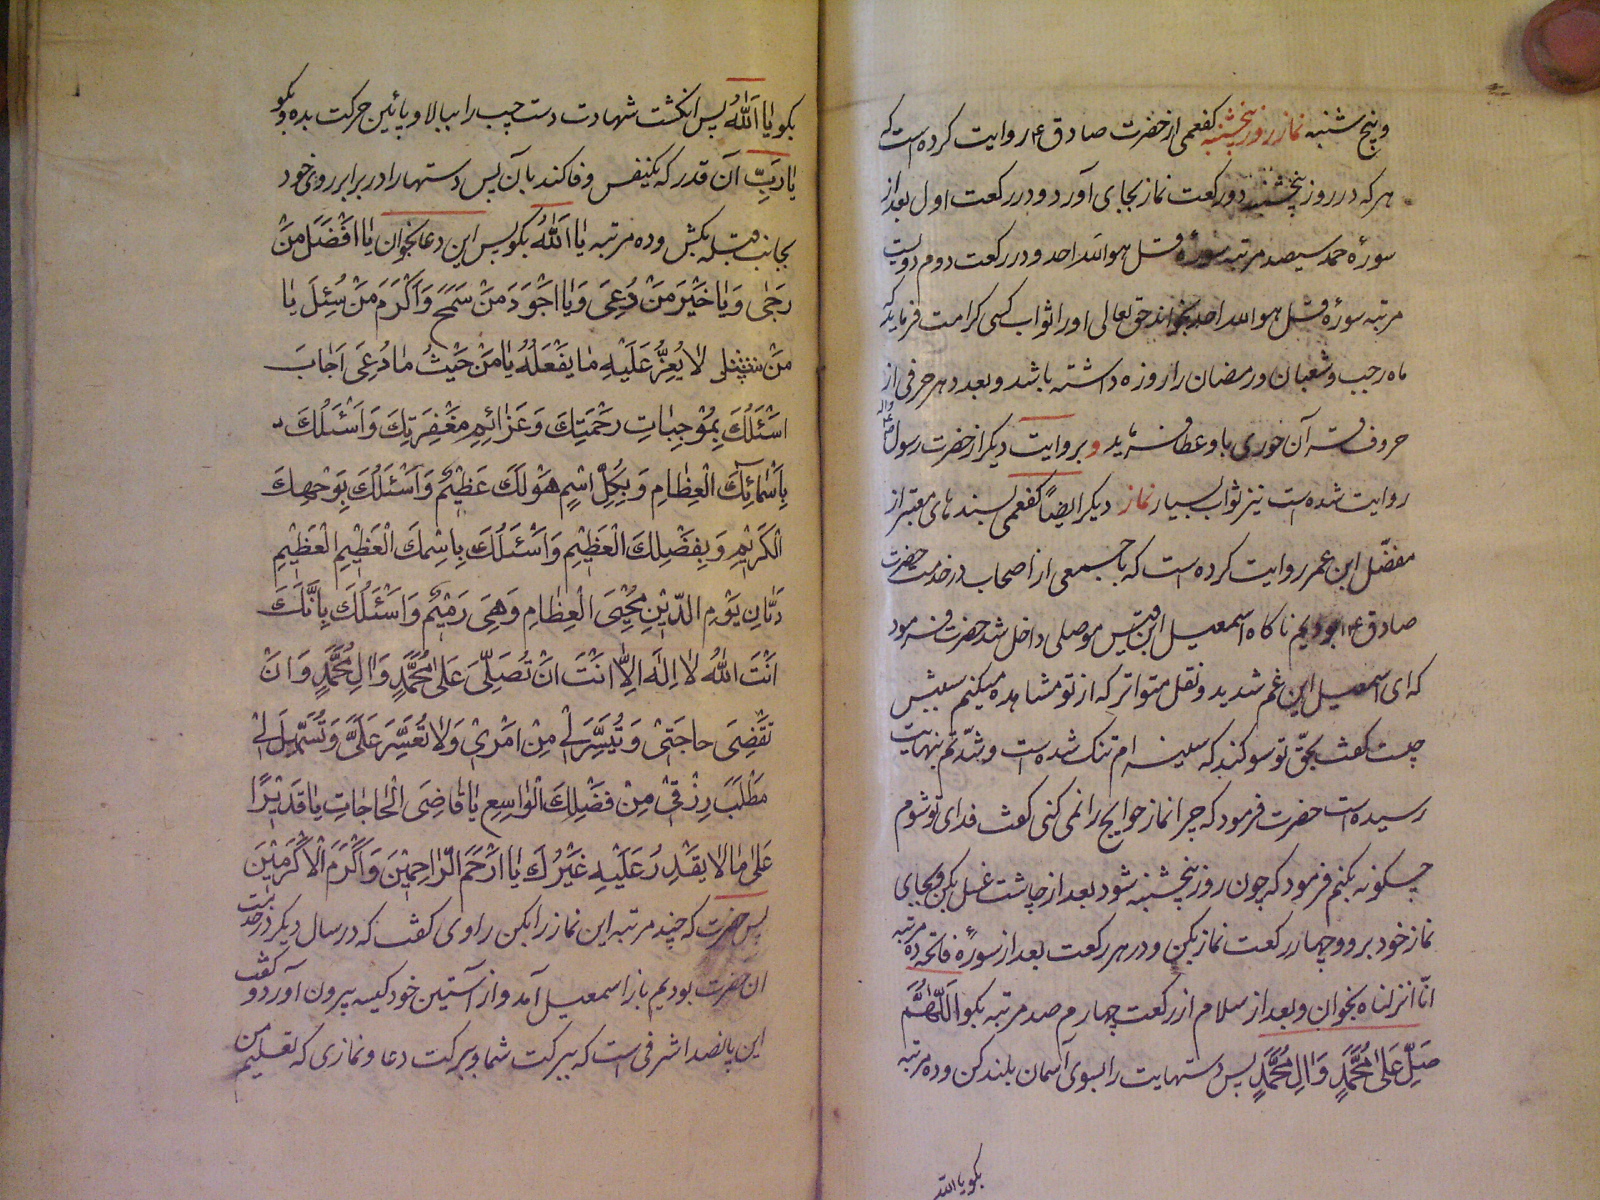 و پنج شنبه نماز روز پنجشنبه کفعمی از حضرت صادق ع روایت کرده است که
هر که در روز پنجشنبه دو رکعت نماز بجای آورد و در رکعت اول بعد از
سورهٔ حمد سیصد مرتبه سورهٔ قل هو الله احد و در رکعت دوم دویست
مرتبه سورهٔ قل هو الله احد بخواند حق تعالی او را ثواب کسی کرامت فرماید که
ماه رجب و شعبان و رمضان را روزه داشته باشد و بعدد هر حرفی از
حروف قرآن حوری باو عطا فرماید و بروایت دیگر از حضرت رسول
روایت شده است نیز ثواب بسیار نماز دیگر ایضاً کفعمی بسندهای معتبر از
مفضّل ابن عمر روایت کرده است که با جمعی از اصحاب در خدمت حضرت
صادق ع بودیم ناکاه اسمعیل ابن قیس موصلی داخل شد حضرت فرمود
که ای اسمعیل این غم شدید و نقل متواتر که از تو مشاهده میکنم سببش
چیست کفت بحقّ تو سوکند که سینه ام تنک شده است و شدّتم بنهایت
رسیده است حضرت فرمود که چرا نماز حوایج را نمی کنی کفت فدای تو شوم
چکونه بکنم فرمود که چون روز پنجشنبه شود بعد از چاشت غسل بکن و بجای
نماز خود برو و چهار رکعت نماز بکن و در هر رکعت بعد از سورهٔ فاتحه ده مرتبه
انّا انزلناه بخوان و بعد از سلام از رکعت چهارم صد مرتبه بکو اَللّهُمَّ
صَلِّ عَلیٰ مُحَمَّدٍ وَ اٰلِ مُحَمَّدٍ پس دستهایت را بسوی آسمان بلند کن و ده مرتبه
بکو یا الله
بکو یٰا اَللّٰهُ پس انکشت شهادت دست چپ را ببالا و پائین حرکت بده و بکو
یٰا رَبِّ آن قدر که یکنفس وفا کند بآن پس دستها را در برابر روی خود
بجانب قبله بکش و ده مرتبه یٰا اَللّٰهُ بکو پس این دعا بخوان یٰا اَفْضَلَ مَنْ
رَجٰی وَ یٰا خَیْرَ مَنْ دُعِیَ وَ یٰا اَجْوَدَ مَنْ سَمَحَ وَ اَکْرَمَ مَنْ سُئِلَ یٰا
مَنْ لٰا یُعِزُّ عَلَیْهِ مٰا یَفْعَلُهُ یٰا مَنْ حَیْثُ مٰا دُعِیَ اَجٰابَ
اَسْئَلُکَ بِمُوْجِبٰاتِ رَحْمَتِکَ وَ عَزٰائِمِ مَغْفِرَتِکَ وَ اَسْئَلُکَ
بِاَسْمٰائِکَ الْعِظٰامِ وَ بِکُلِّ اسْمٍ هُوَ لَکَ عَظِیْمٌ وَ اَسْئَلُکَ بِوَجْهِکَ
الْکَرِیْمِ وَ بِفَضْلِکَ الْعَظِیْمِ وَ اَسْئَلُکَ بِاسْمِکَ الْعَظِیْمِ الْعَظِیْمِ
دَیّٰانِ یَوْمِ الدّیْنِ مُحْیِیَ الْعِظٰامِ وَ هِیَ رَمِیْمٌ وَ اَسْئَلُکَ بِاَنَّکَ
اَنْتَ اللّٰهُ لٰا اِلٰهَ اِلّٰا اَنْتَ اَنْ تُصَلِّیَ عَلیٰ مُحَمَّدٍ وَ اٰلِ مُحَمَّدٍ وَ اَنْ
تَقْضِیَ حاجَتیْ وَ تُیَسِّرَ لیْ مِنْ اَمْرِیْ وَ لٰا تُعَسِّرَ عَلَیَّ وَ تُسَهِّلَ لیْ
مَطْلَبَ رِزْقیْ مِنْ فَضْلِکَ الْوٰاسِعِ یٰا قٰاضِیَ الْحٰاجٰاتِ یٰا قَدیْرًا
عَلیٰ مٰا لٰا یَقْدِرُ عَلَیْهِ غَیْرُکَ یٰا اَرْحَمَ الرّٰاحِمیْنَ وَ اَکْرَمَ الْاَکْرَمیْنَ
پس حضرت که چند مرتبه این نماز را بکن راوی کفت که در سال دیکر در خدمت
آن حضرت بودیم باز اسمعیل آمد و از آستین خود کیسه بیرون آورد و کفت
این پانصد اشرفی است که ببرکت شما و ببرکت دعا و نمازی که تعلیم من